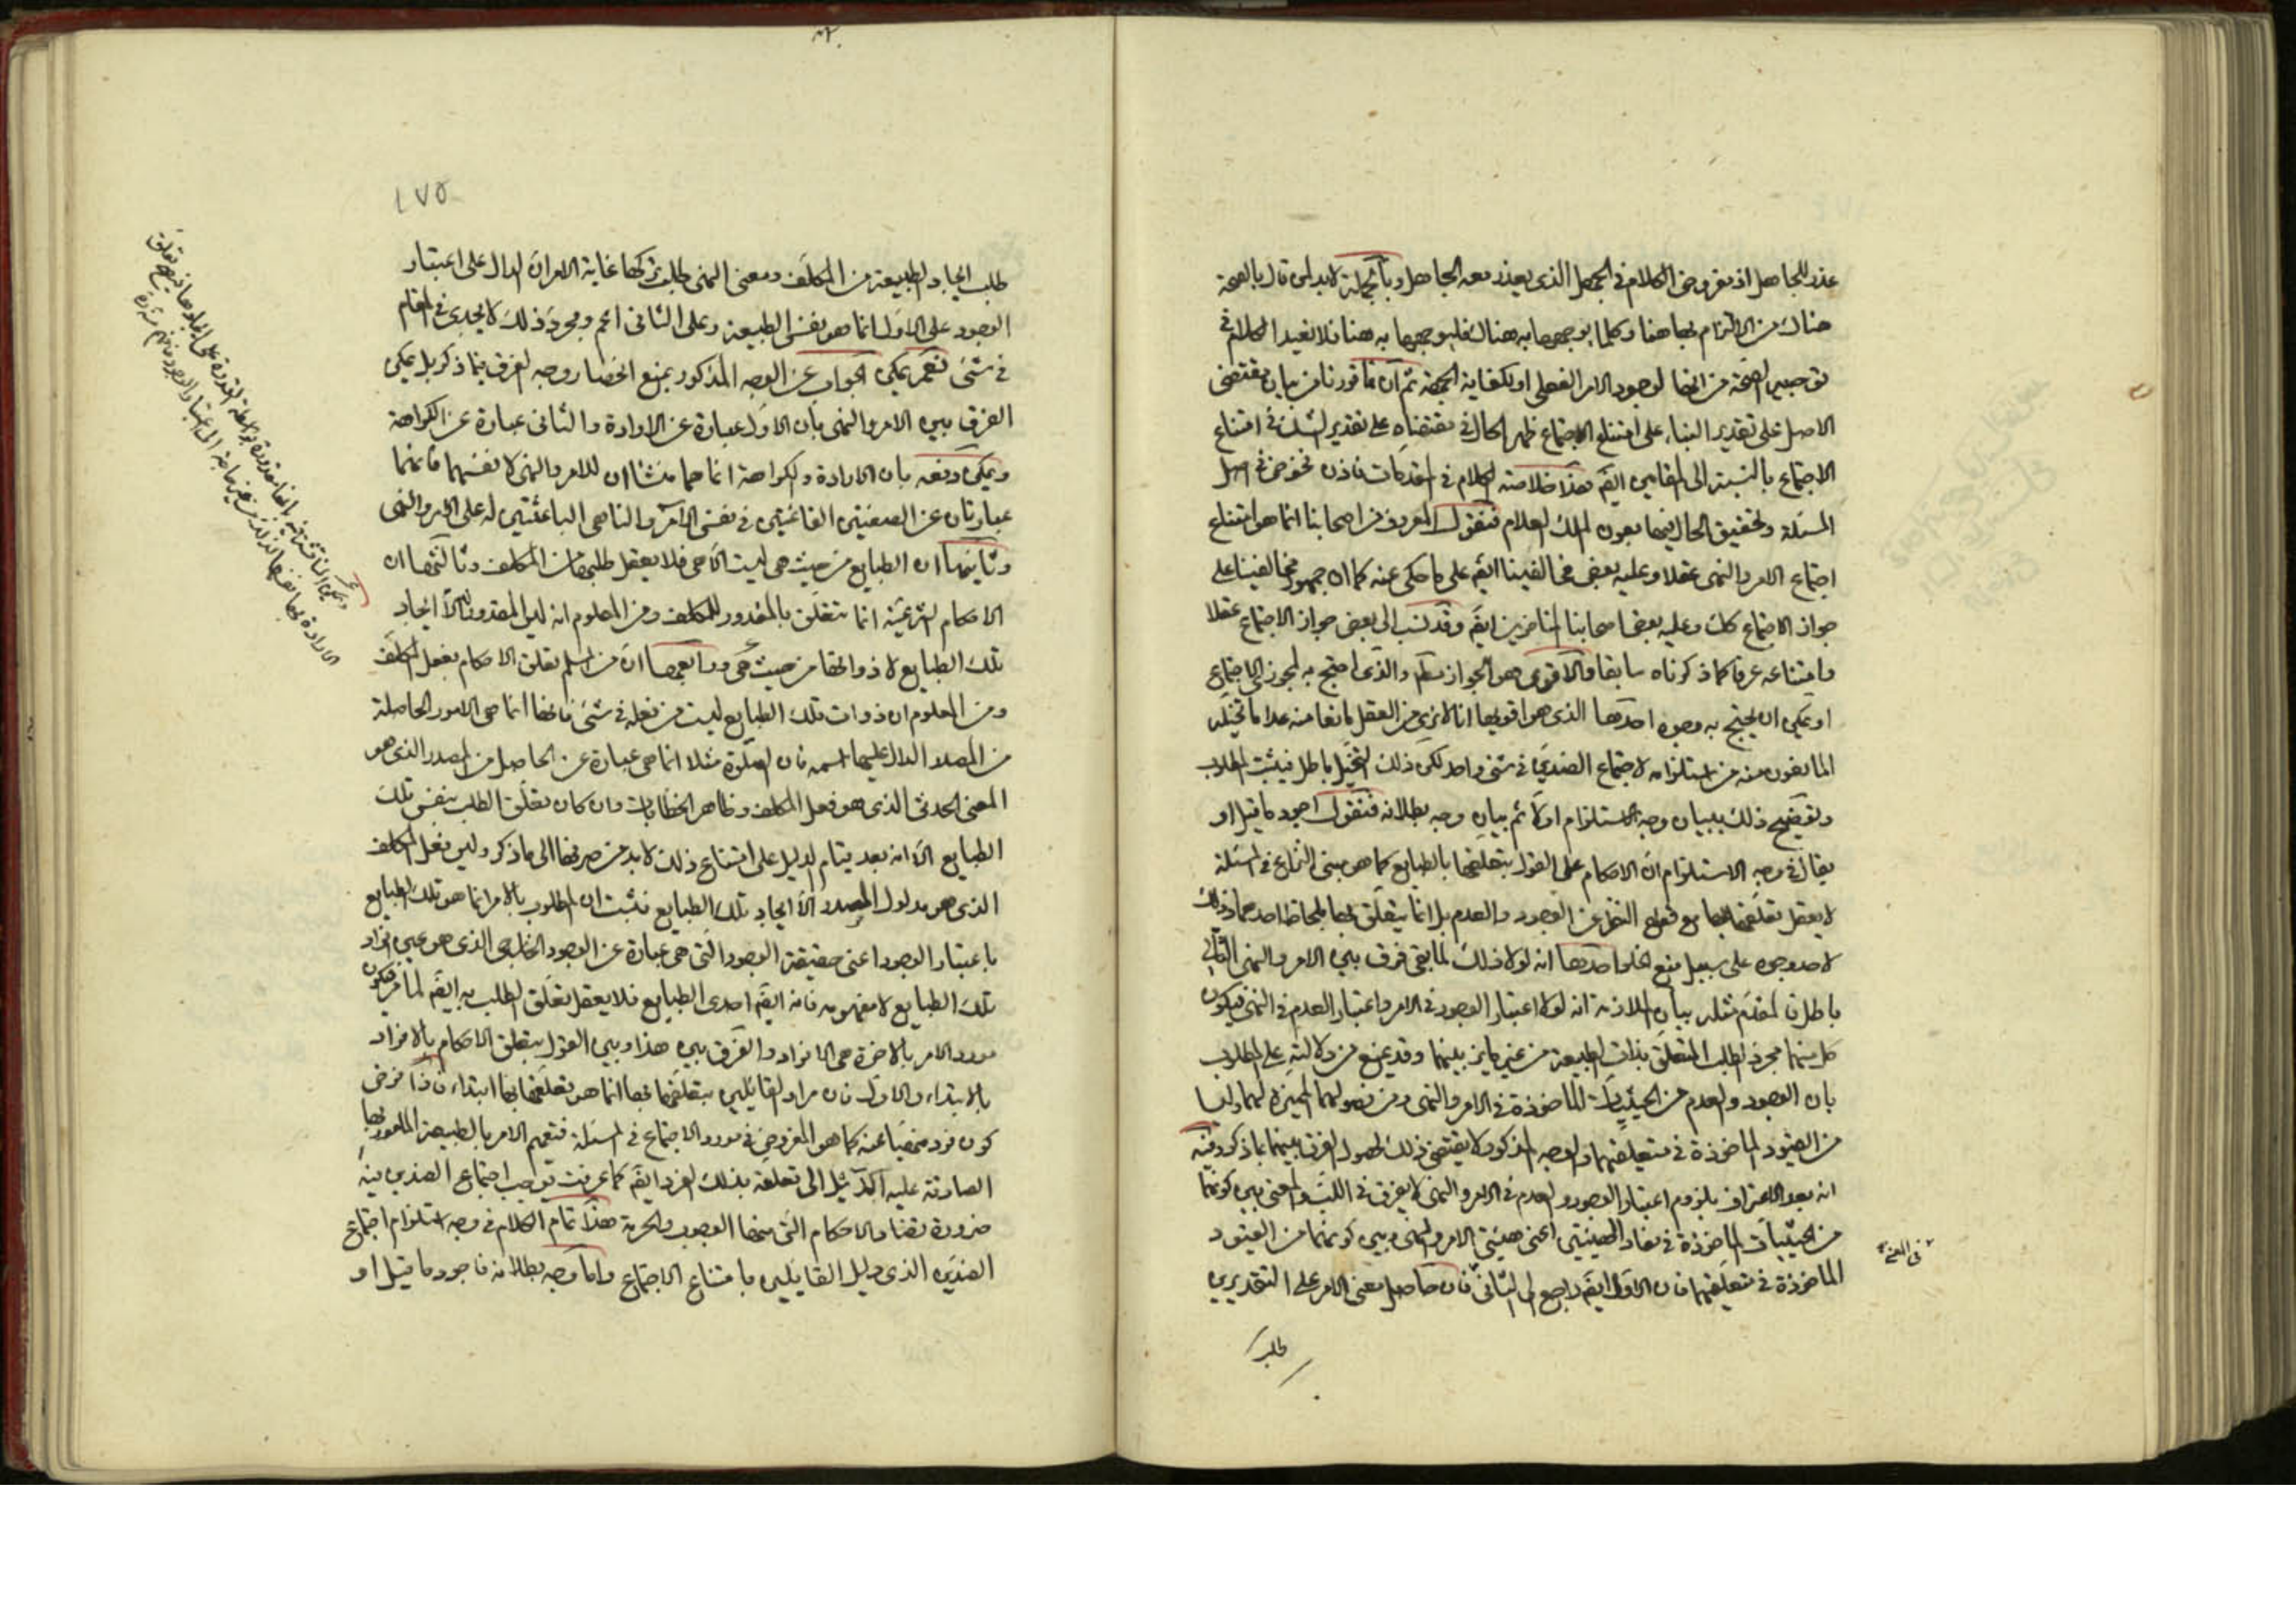 عذر للجاهل اذ مفروض الكلام في الجهل الذي يعذر معه الجاهل وبالجملة لابد لمن قال بالصحة
هناك من الالتزام بها هنا وكلما يوجهها به هناك فليوجهها به هنا فلا نعيد الكلام في
توجيه الصحة من انها لوجود الامر الفعلي او لكفاية الجهة ثم ان ما قررنا من بيان مقتضى
الاصل على تقدير البناء على امتناع الاجتماع ظهر الحال في مقتضاه على تقدير الشك في امتناع
الاجتماع بالنسبة الى المقامين ايضا هذا خلاصة الكلام في المقدمات فاذن نخوض في اصل
المسئلة وتحقيق الحال فيها بعون الملك العلام فنقول المعروف من اصحابنا انما هو امتناع
اجتماع الامر والنهى عقلا وعليه بعض مخالفينا ايضا على ما حكى عنه كما ان جمهور مخالفينا على
جواز الاجتماع كك وعليه بعض اصحابنا المتاخرين ايضا وقد نسب الى بعض جواز الاجتماع عقلا
وامتناعه عرفا كما ذكرناه سابقا والاقوى هو الجواز مطلقا والذي احتج به المجوز للاجتماع
او يمكن ان يحتج به وجوه احدها الذي هو اقويها انا لا نرى من العقل مانعا منه عدا ما تخيله
المانعون منه من استلزامه لاجتماع الضدين في شئ واحد لكن ذلك التخيل باطل فيثبت المطلوب
وتوضيح ذلك ببيان وجه الاستلزام اولا ثم بيان وجه بطلانه فنقول اجود ما قيل او
يقال في وجه الاستلزام ان الاحكام على القول بتعلقها بالطبايع كما هو مبنى النزاع في المسئلة
لا يعقل تعلقها بها مع قطع النظر عن الوجود والعدم بل انما يتعلق بها بلحاظ احدهما وذلك
لاحد وجوه على سبيل منع الخلو احدها انه لولا ذلك لما بقى فرق بين الامر والنهى التالي
باطل فالمقدم مثله بيان الملازمة انه لولا اعتبار الوجود في الامر واعتبار العدم في النهى فيكون
كل منهما مجرد الطلب المتعلق بذات الطبيعة من غير مايز بينهما وقد يمنع من دلالته على المطلوب
بان الوجود والعدم من الحيثيات الماخوذة في الامر والنهى ومن فصولهما المميزة لهما وليسا
من القيود الماخوذة في متعلقهما والوجه المذكور لا يقتضى ذلك لحصول الفرق بينهما بما ذكر وفيه
انه بعد الاعتراف بلزوم اعتبار الوجود والعدم في الامر والنهى لا يفرق في اللب والمعنى بين كونهما
من الحيثيات الماخوذة في مفاد الهيئتين اعنى هيئتى الامر والنهى وبين كونهما من القيود
الماخوذة في متعلقهما فان الاول ايضا راجع الى الثاني فان حاصل معنى الامر على التقديرين
طلب
في المعنى
١٧٥
طلب ايجاد الطبيعة من المكلف ومعنى النهى طلب تركها غاية الامر ان الدال على اعتبار
الوجود على الاول انما هو نفس الطبيعة وعلى الثاني اعم ومجرد ذلك لا يجدى في المقام
في شئ نعم يمكن الجواب عن الوجه المذكور بمنع انحصار وجه الفرق فيما ذكر بل يمكن
الفرق بين الامر والنهى بان الاول عبارة عن الارادة والثاني عبارة عن الكراهة
ويمكن دفعه بان الارادة والكراهة انما هما منشاان للامر والنهى لا نفسهما فانهما
عبارتان عن الصفتين القائمتين في نفس الآمر والناهى الباعثتين له على الامر والنهى
وثانيهما ان الطبايع من حيث هى ليست الا هى فلا يعقل طلبها من المكلف وثالثها ان
الاحكام الشرعية انما تتعلق بالمقدور للمكلف ومن المعلوم انه ليس المقدور له الا ايجاد
تلك الطبايع لا ذواتها من حيث هى ورابعها ان من المسلم تعلق الاحكام بفعل المكلف
ومن المعلوم ان ذوات تلك الطبايع ليست من فعله في شئ فانها انما هى الامور الحاصلة
من المصدر الدال عليها اسمه فان الصلوة مثلا انما هى عبارة عن الحاصل من المصدر الذي هو
المعنى الحدثى الذي هو فعل المكلف وظاهر الخطابات وان كان تعلق الطلب بنفس تلك
الطبايع الا انه بعد قيام الدليل على امتناع ذلك لابد من صرفها الى ما ذكر وليس فعل المكلف
الذي هو مدلول المصدر الا ايجاد تلك الطبايع فثبت ان المطلوب بالامر انما هو تلك الطبايع
باعتبار الوجود اعنى حقيقة الوجود التى هى عبارة عن الوجود الخارجى الذي هو عين افراد
تلك الطبايع لا مفهومه فانه ايضا احدى الطبايع فلا يعقل تعلق الطلب به ايضا لما مر فيكون
مورد الامر بالاخرة هى الافراد والفرق بين هذا وبين القول بتعلق الاحكام بالافراد
بالابتداء والاول فان مراد القائلين بتعلقها بها انما هو تعلقها بها ابتداء فاذا فرض
كون فرد منهيا عنه كما هو المفروض في مورد الاجتماع في المسئلة فتعميم الامر بالطبيعة المامور بها
الصادقة عليه الى تعلقه بذلك الفرد ايضا كما عرفت توجب اجتماع الضدين فيه
ضرورة تضاد الاحكام التى منها الوجوب والحرمة هذا تمام الكلام في وجه استلزام اجتماع
الضدين الذي دليل القائلين بامتناع الاجتماع واما وجه بطلانه فاجود ما قيل او